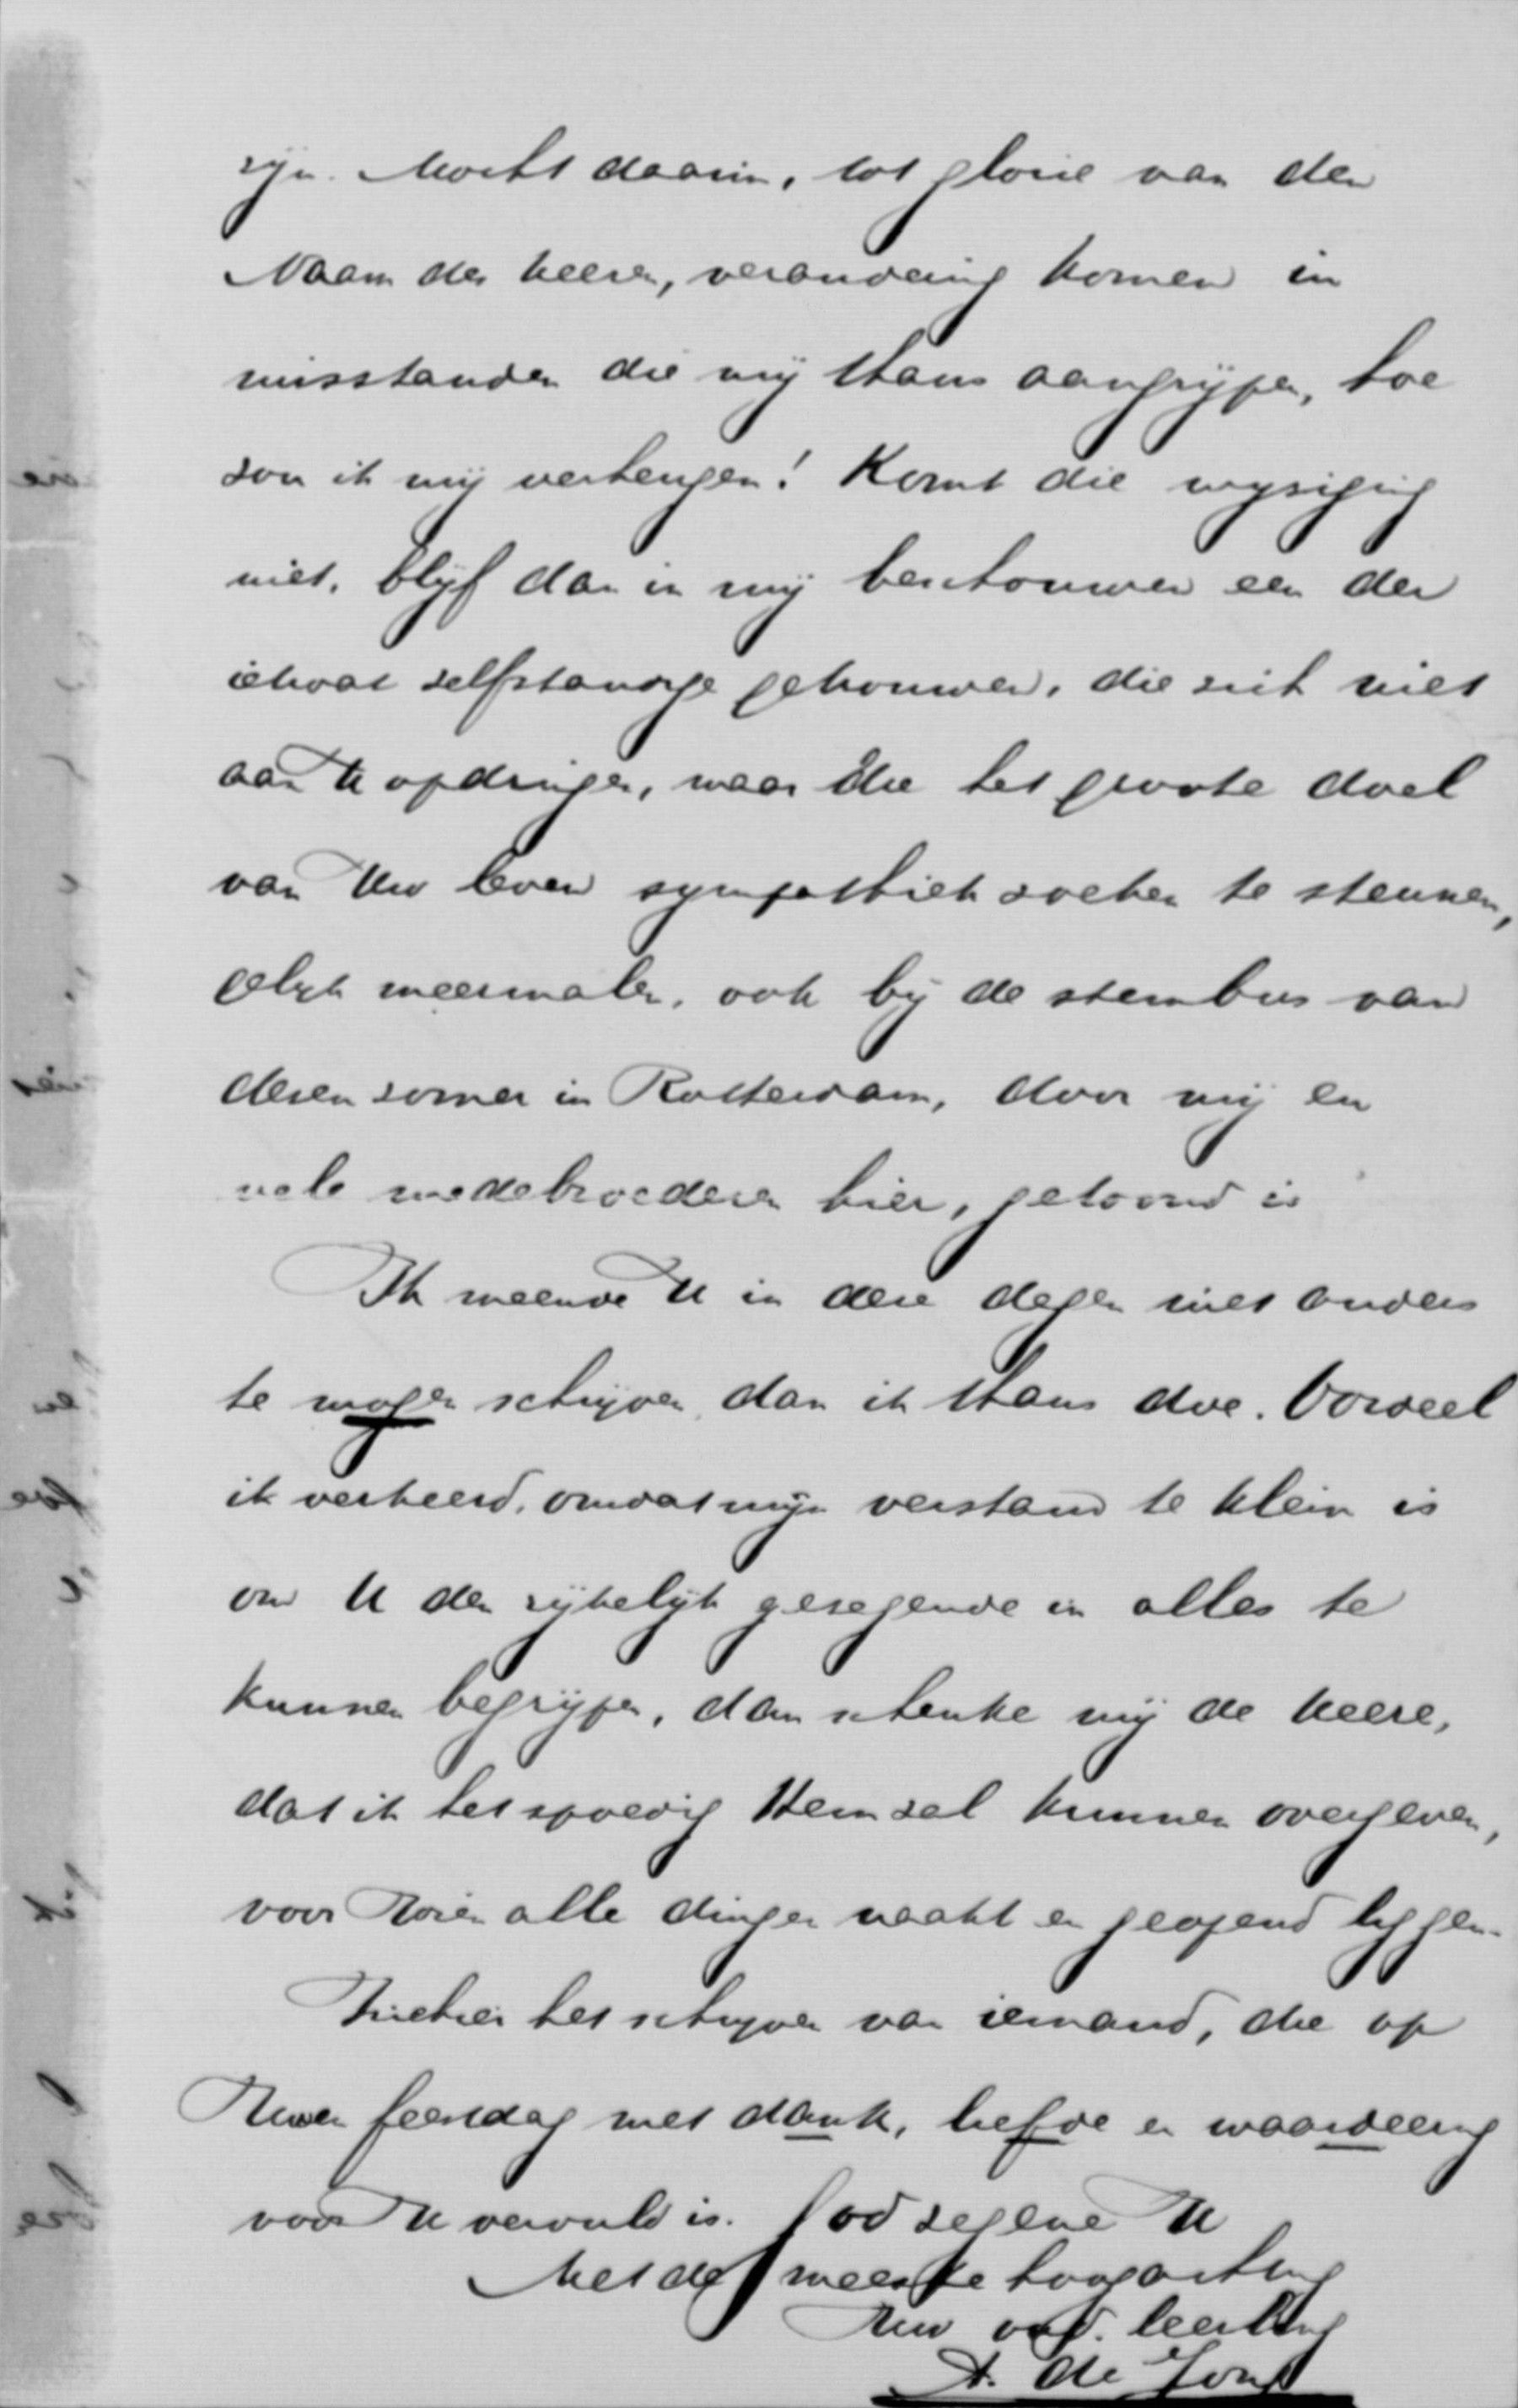 zijn. Mocht daarin, tot glorie van den
Naam des Heeren, verandering komen in
misstanden die mij thans aangrijpen, hoe
zou ik mij verheugen! Komt die wijziging
niet, blijf dan in mij beschouwen een der
ietwat zelfstandige getrouwen, die zich niet
aan U opdringen, maar die het groote doel
van Uw leven sympathiek zoeken te steunen,
gelijk meermalen, ook bij de stembus van
dezen zomer in Rotterdam, door mij en
vele medebroederen hier, getoond is
Ik meende U in deze dagen niet anders
te mogen schrijven dan ik thans doe. Oordeel
ik verkeerd, omdat mijn verstand te klein is
om U den rijkelijk gezegende in alles te
kunnen begrijpen, dan schenke mij de Heere,
dat ik het spoedig Hem zal kunnen overgeven,
voor Wien alle dingen naakt en geopend liggen.
Ziehier het schrijven van iemand, die op
Uwen feestdag met dank, liefde en waardeering
voor U vervuld is. God zegene U
Met de meeste hoogachting
Uw oud. leerling
A. de Jong